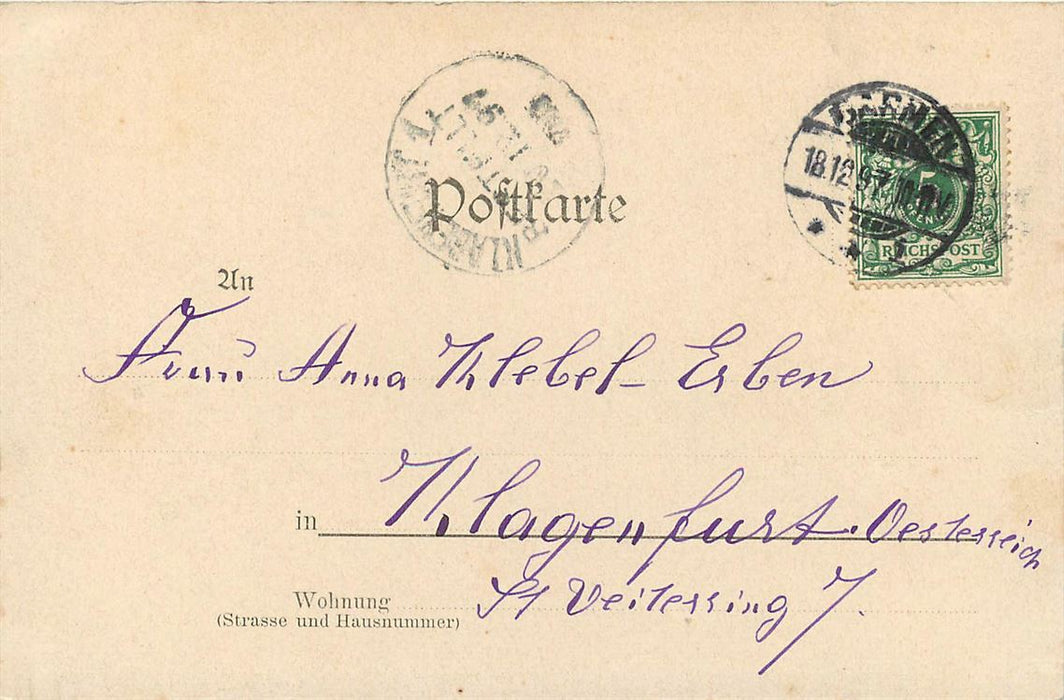 BARMEN
18.12.97
5
REICHSPOST
KLAGENFURT
Postkarte
An
Frau Anna Klebel-Erben
in Klagenfurt. Oesterreich
Wohnung St Veiterring 7.
(Strasse und Hausnummer)